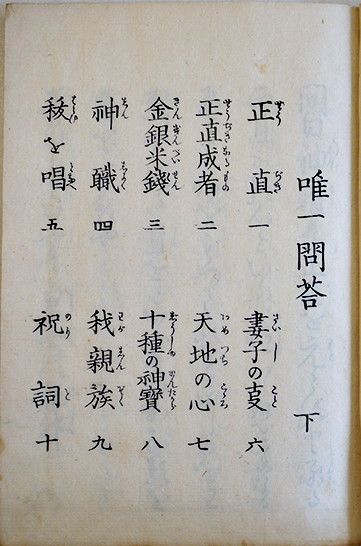 唯一問答 下
正直 一
正直成者 二
金銀米錢 三
神職 四
秡を唱 五
妻子の㕝 六
天地の心 七
十種の神寶 八
我親族 九
祝詞 十